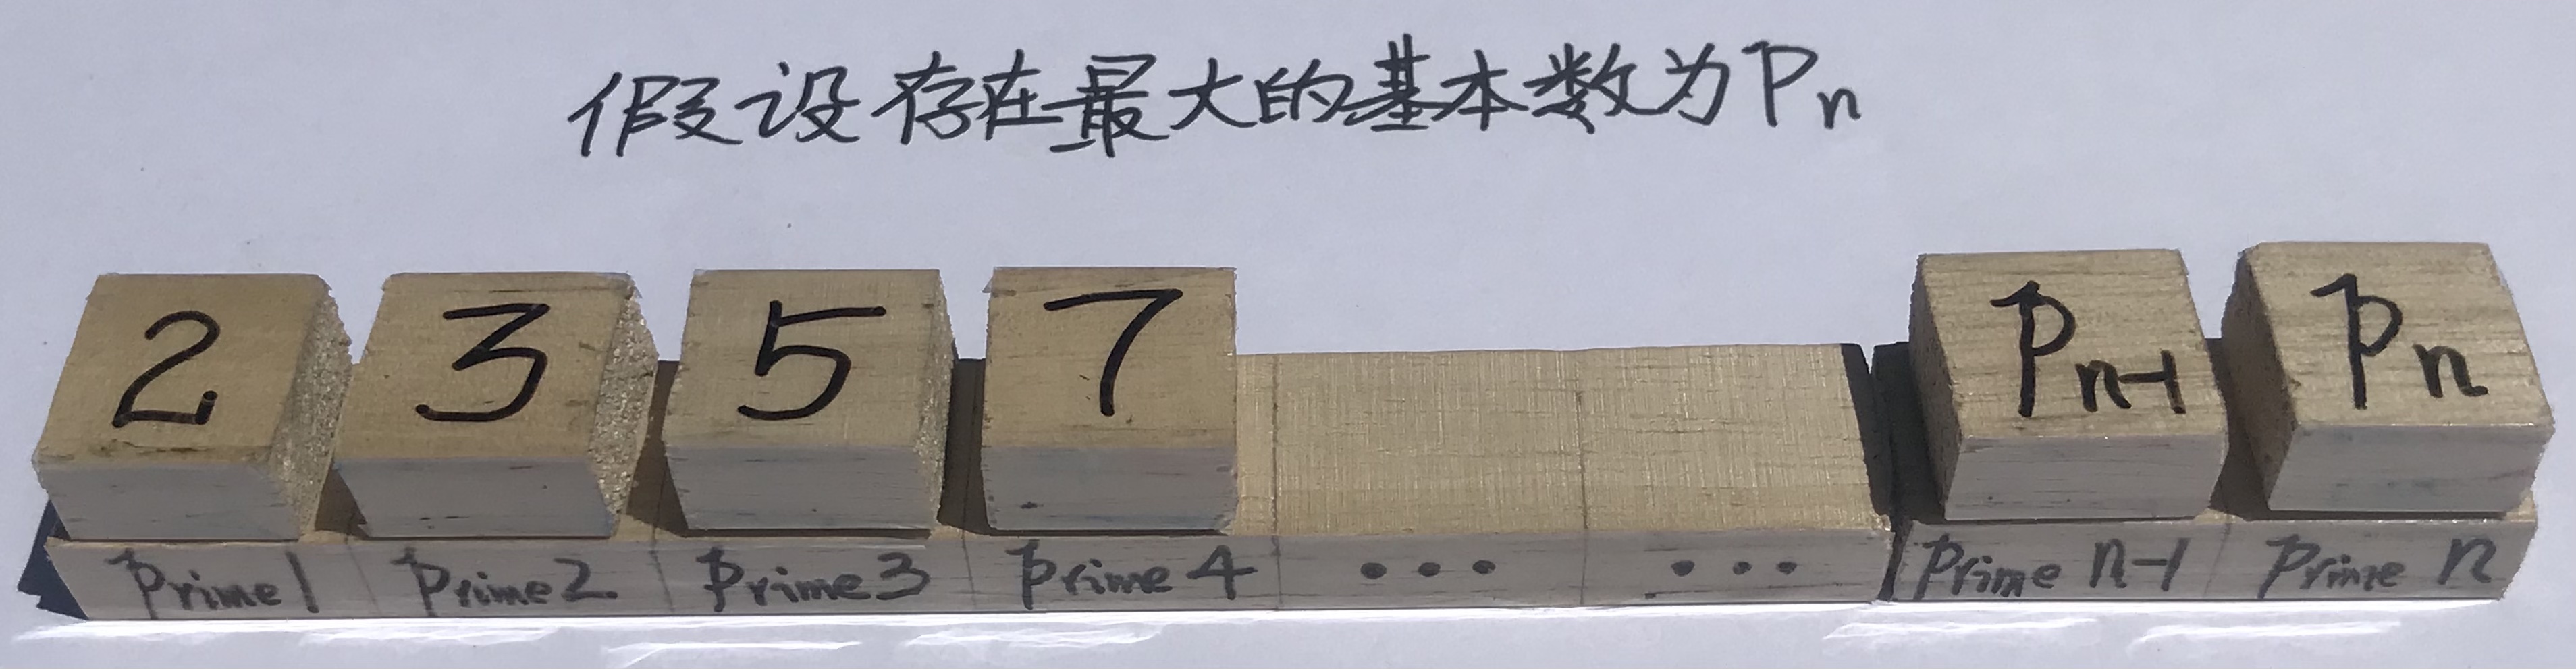 假设存在最大的基本数为Pn
2 3 5 7 Pn-1 Pn
Prime1 Prime2 Prime3 Prime4 ... ... Prime n-1 Prime n